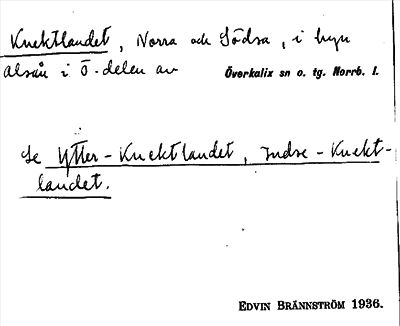 Knektlandet, Norra och Södra, i byn
Alsån i Ö. delen av Överkalix sn o. tg. Norrb. l.
Se Ytter-Knektlandet, Indre-Knekt-
landet.
EDVIN BRÄNNSTRÖM 1936.